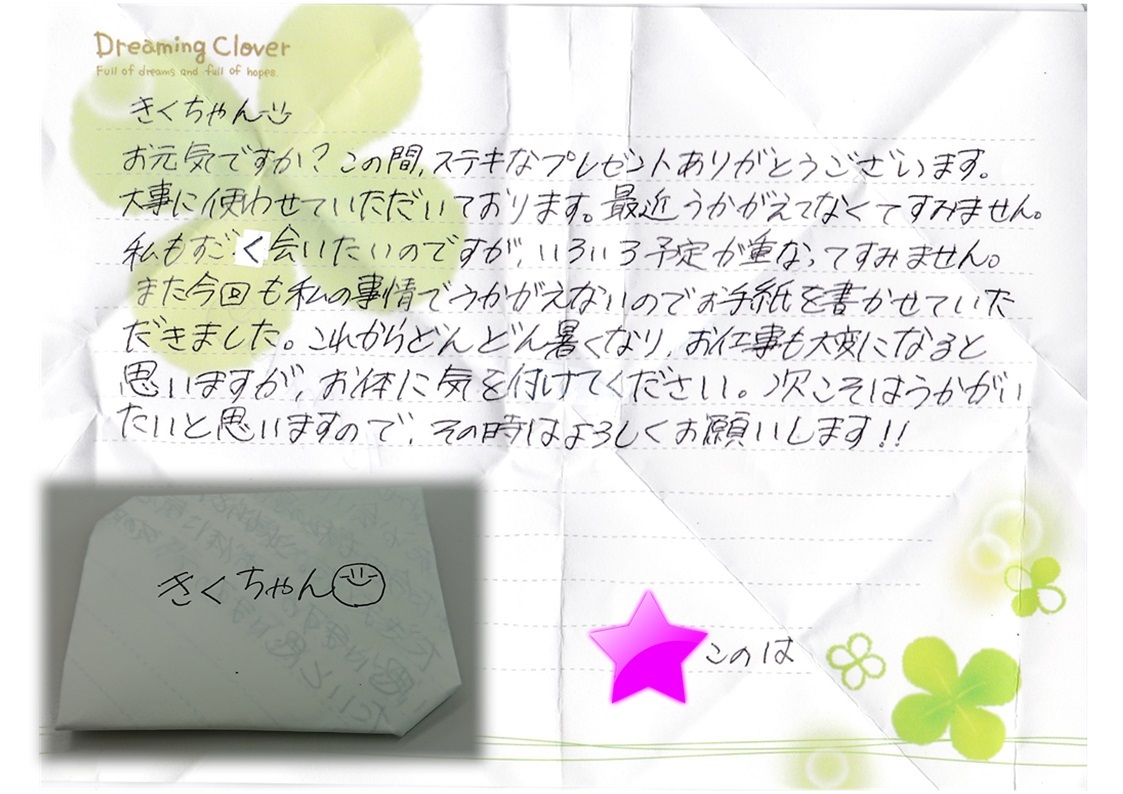 Dreaming Clover
Full of dreams and full of hopes.
きくちゃん
お元気ですか?この間,ステキなプレゼントありがとうございます。
大事に使わせていただいております。最近うかがえてなくてすみません。
私もすごく会いたいのですが,いろいろ予定が重なってすみません。
また今回も私の事情でうかがえないのでお手紙を書かせていた
だきました。これからどんどん暑くなり,お仕事も大変になると
思いますが,お体に気を付けてください。次こそはうかがい
たいと思いますので,その時はよろしくお願いします!!
きくちゃん
このは